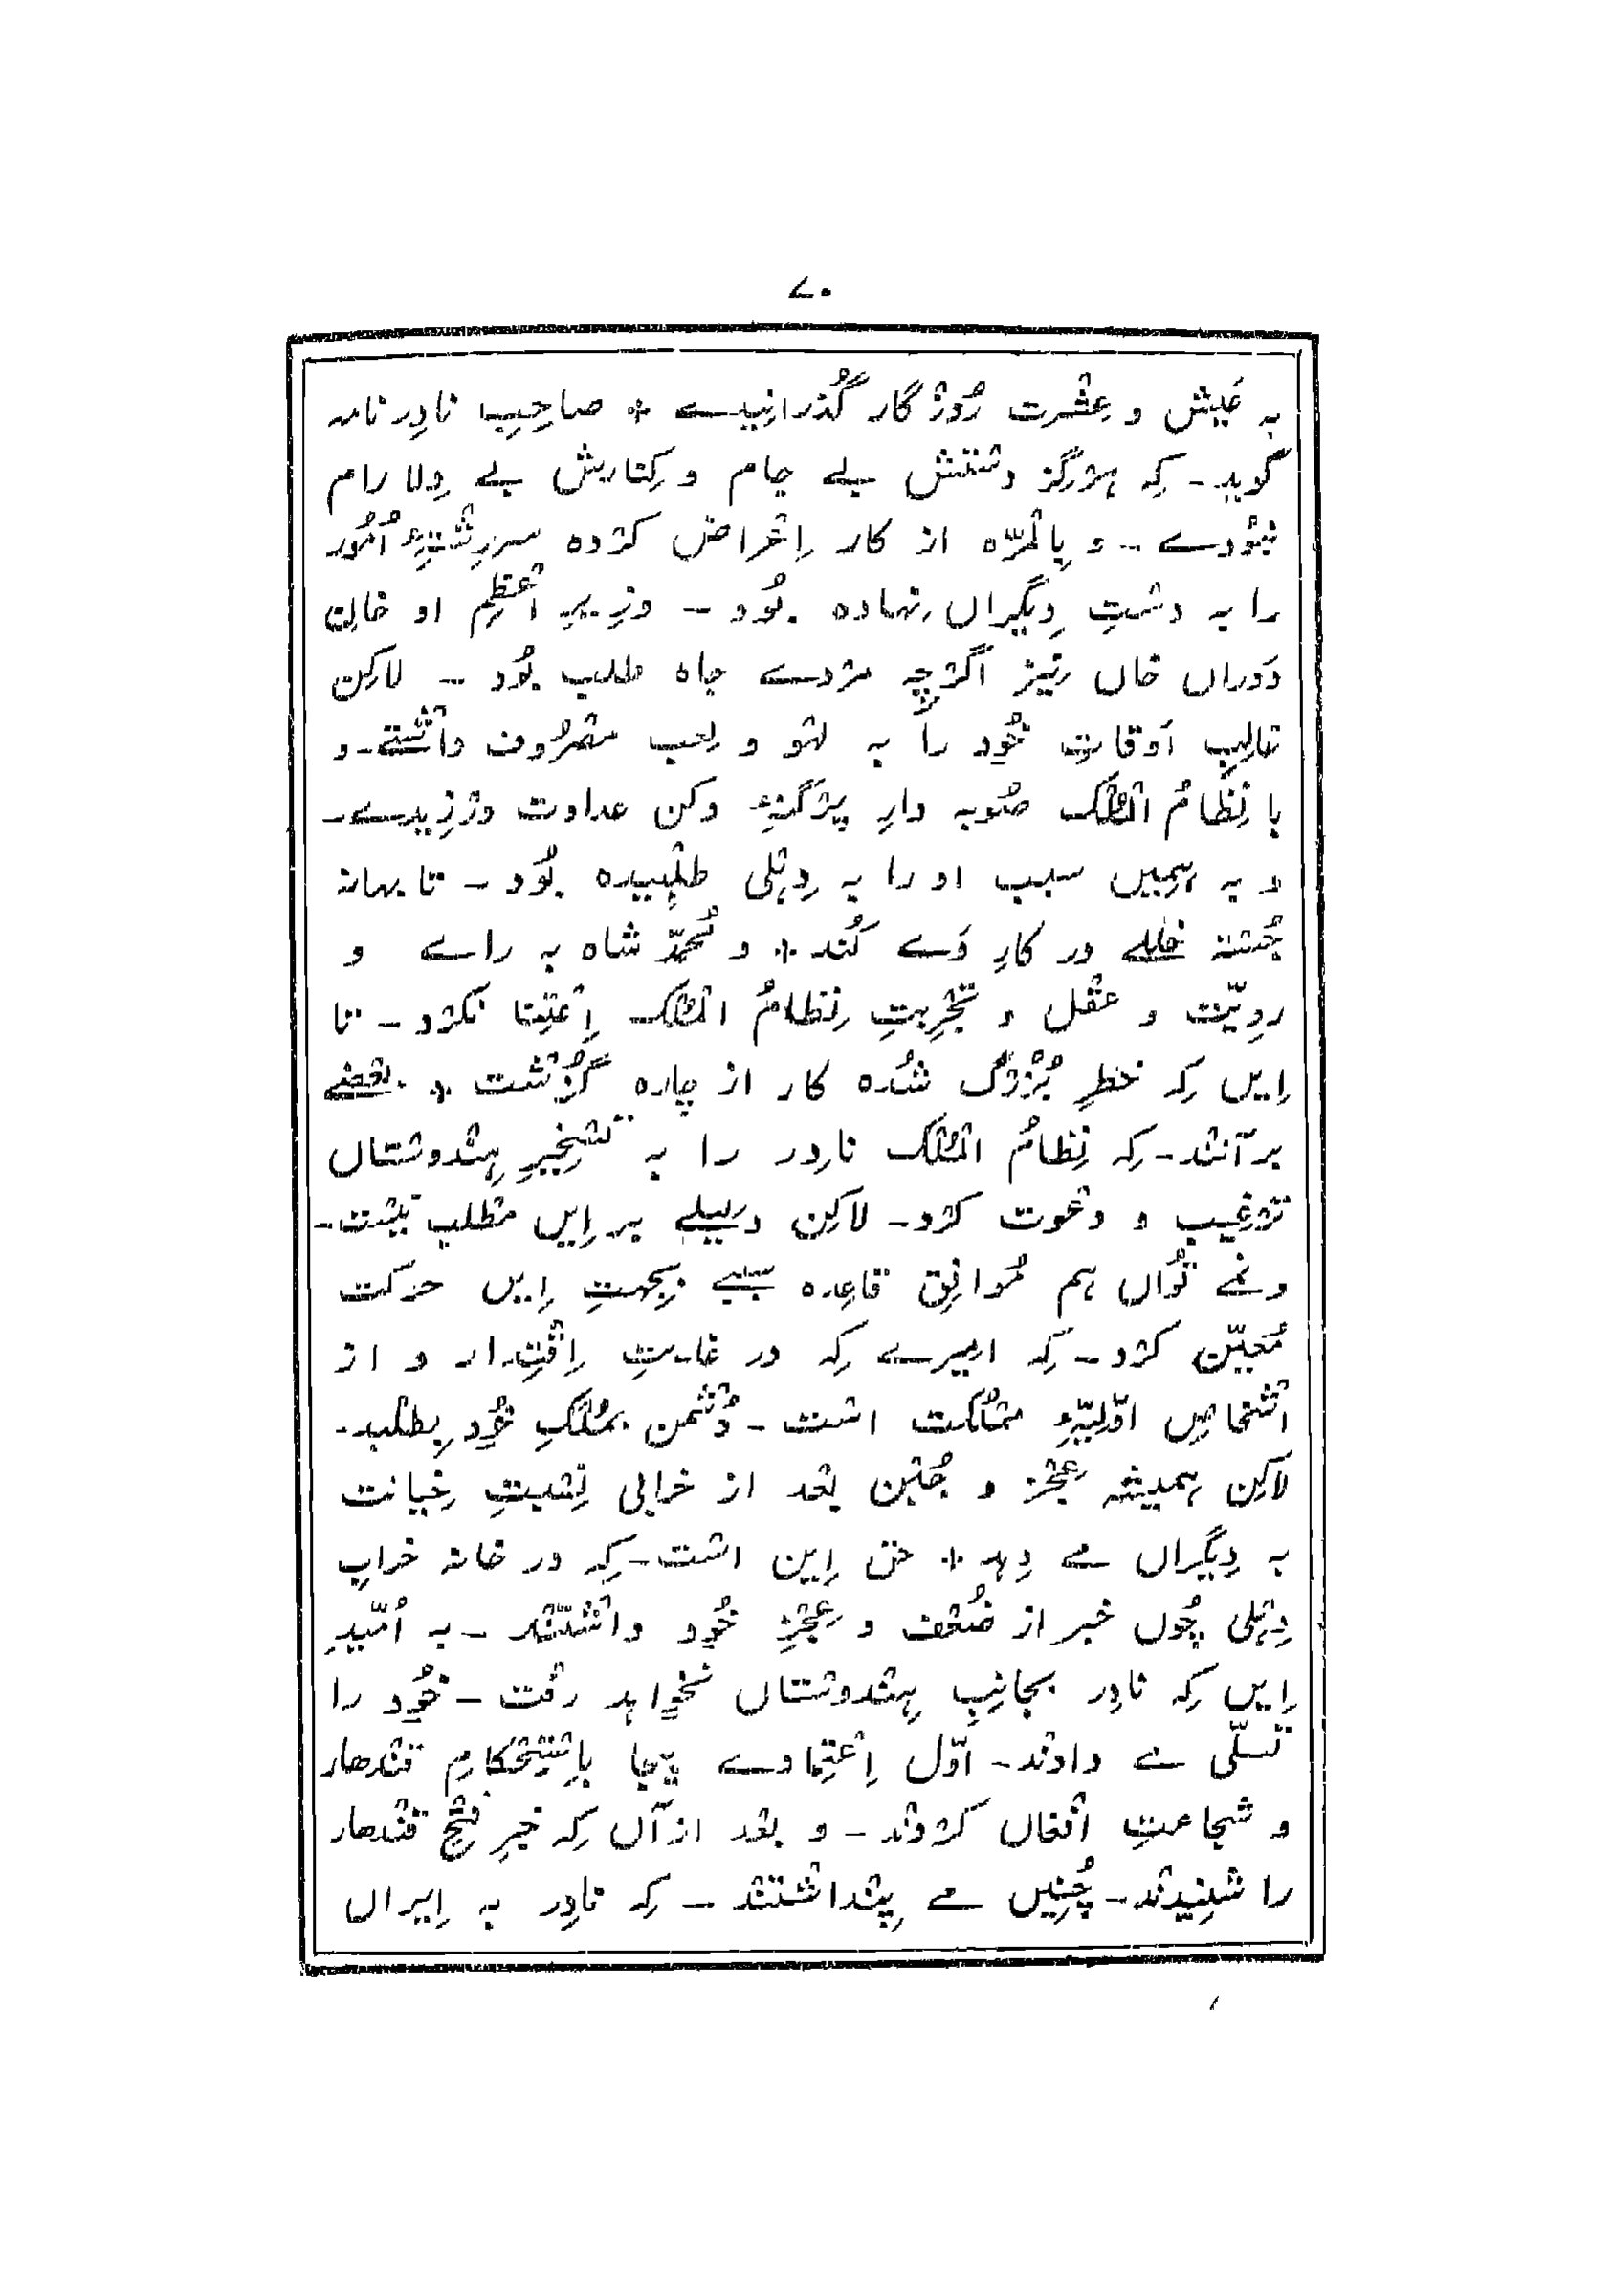 ۷۰
به عَیش و عِشْرت رُوزْگار گُذرانِیدے * صاحِبِ نادِر نامہ
گوید - کِہ ہرْگِز دسْتش بے جام و کِنارش بے دِلا رام
نبُودے - و بِالْمرّہ از کار اِعْراض کرْدہ سررِشْتۂِ اُمُور
را بہ دسْتِ دِیگراں نِہادہ بُود - وزِیرِ اَعْظمِ او خانِ
دَوراں خاں نِیز اگرْچِہ مرْدے جاہ طلب بُود - لاکِن
غالِبِ اَوقاتِ خُود را بہ لہْو و لعِب مصْرُوف داشْتے - و
با نِظامُ الْمُلْک صُوبہ دارِ پرْگنۂِ دکن عداوت ورْزِیدے -
و بہ ہمِیں سبب او را بہ دِہْلی طلْبِیدہ بُود - تا بہانہ
جُسْتہ خللے در کارِ وَے کُند * و مُحمّد شاہ بہ راے و
روِیّت و عقْل و تجْرِبتِ نِظامُ الْمُلْک اِعْتِنا نکرْد - تا
اِیں کِہ خطرِ بُزُرْگ شُدہ کار از چارہ گُزشْت * بعْضے
بر آنند - کِہ نِظامُ الْمُلْک نادِر را بہ تسْخِیرِ ہِنْدوسْتاں
ترْغِیب و دعْوت کرْد - لاکِن دلِیلے بر اِیں مطْلب نِیسْت -
و نمے تواں ہم مُوافِقِ قاعِدہ سببے بجِہتِ اِیں حرکت
مُعیّن کرْد - کِہ امِیرے کِہ در غایتِ اِقْتِدار و از
اشْخاصِ اوّلِیّۂِ ممْلُکت اسْت - دُشْمن بمُلْکِ خُود بِطلْبد -
لاکِن ہمِیشہ عِجْز و جُبْن بعْد از خرابی نِسْبتِ خِیانت
بہ دِیگراں مے دِہد * حق اِین اسْت - کِہ در خانہ خرابِ
دِہْلی چُوں خبر از ضُعْف و عِجْزِ خُود داشْتنْد - بہ اُمّیدِ
اِیں کِہ نادِر بجانِبِ ہِنْدوسْتاں نخواہد رفْت - خُود را
تسلّی مے دادند - اوّل اِعْتِمادے بیجا بِاِسْتِحْکامِ قنْدھار
و شجاعتِ افْغاں کرْدند - و بعْد از آں کِہ خبرِ فتْحِ قنْدھار
را شنِیدنْد - چُنِیں مے پِنْداشْتند - کِہ نادِر بہ اِیراں